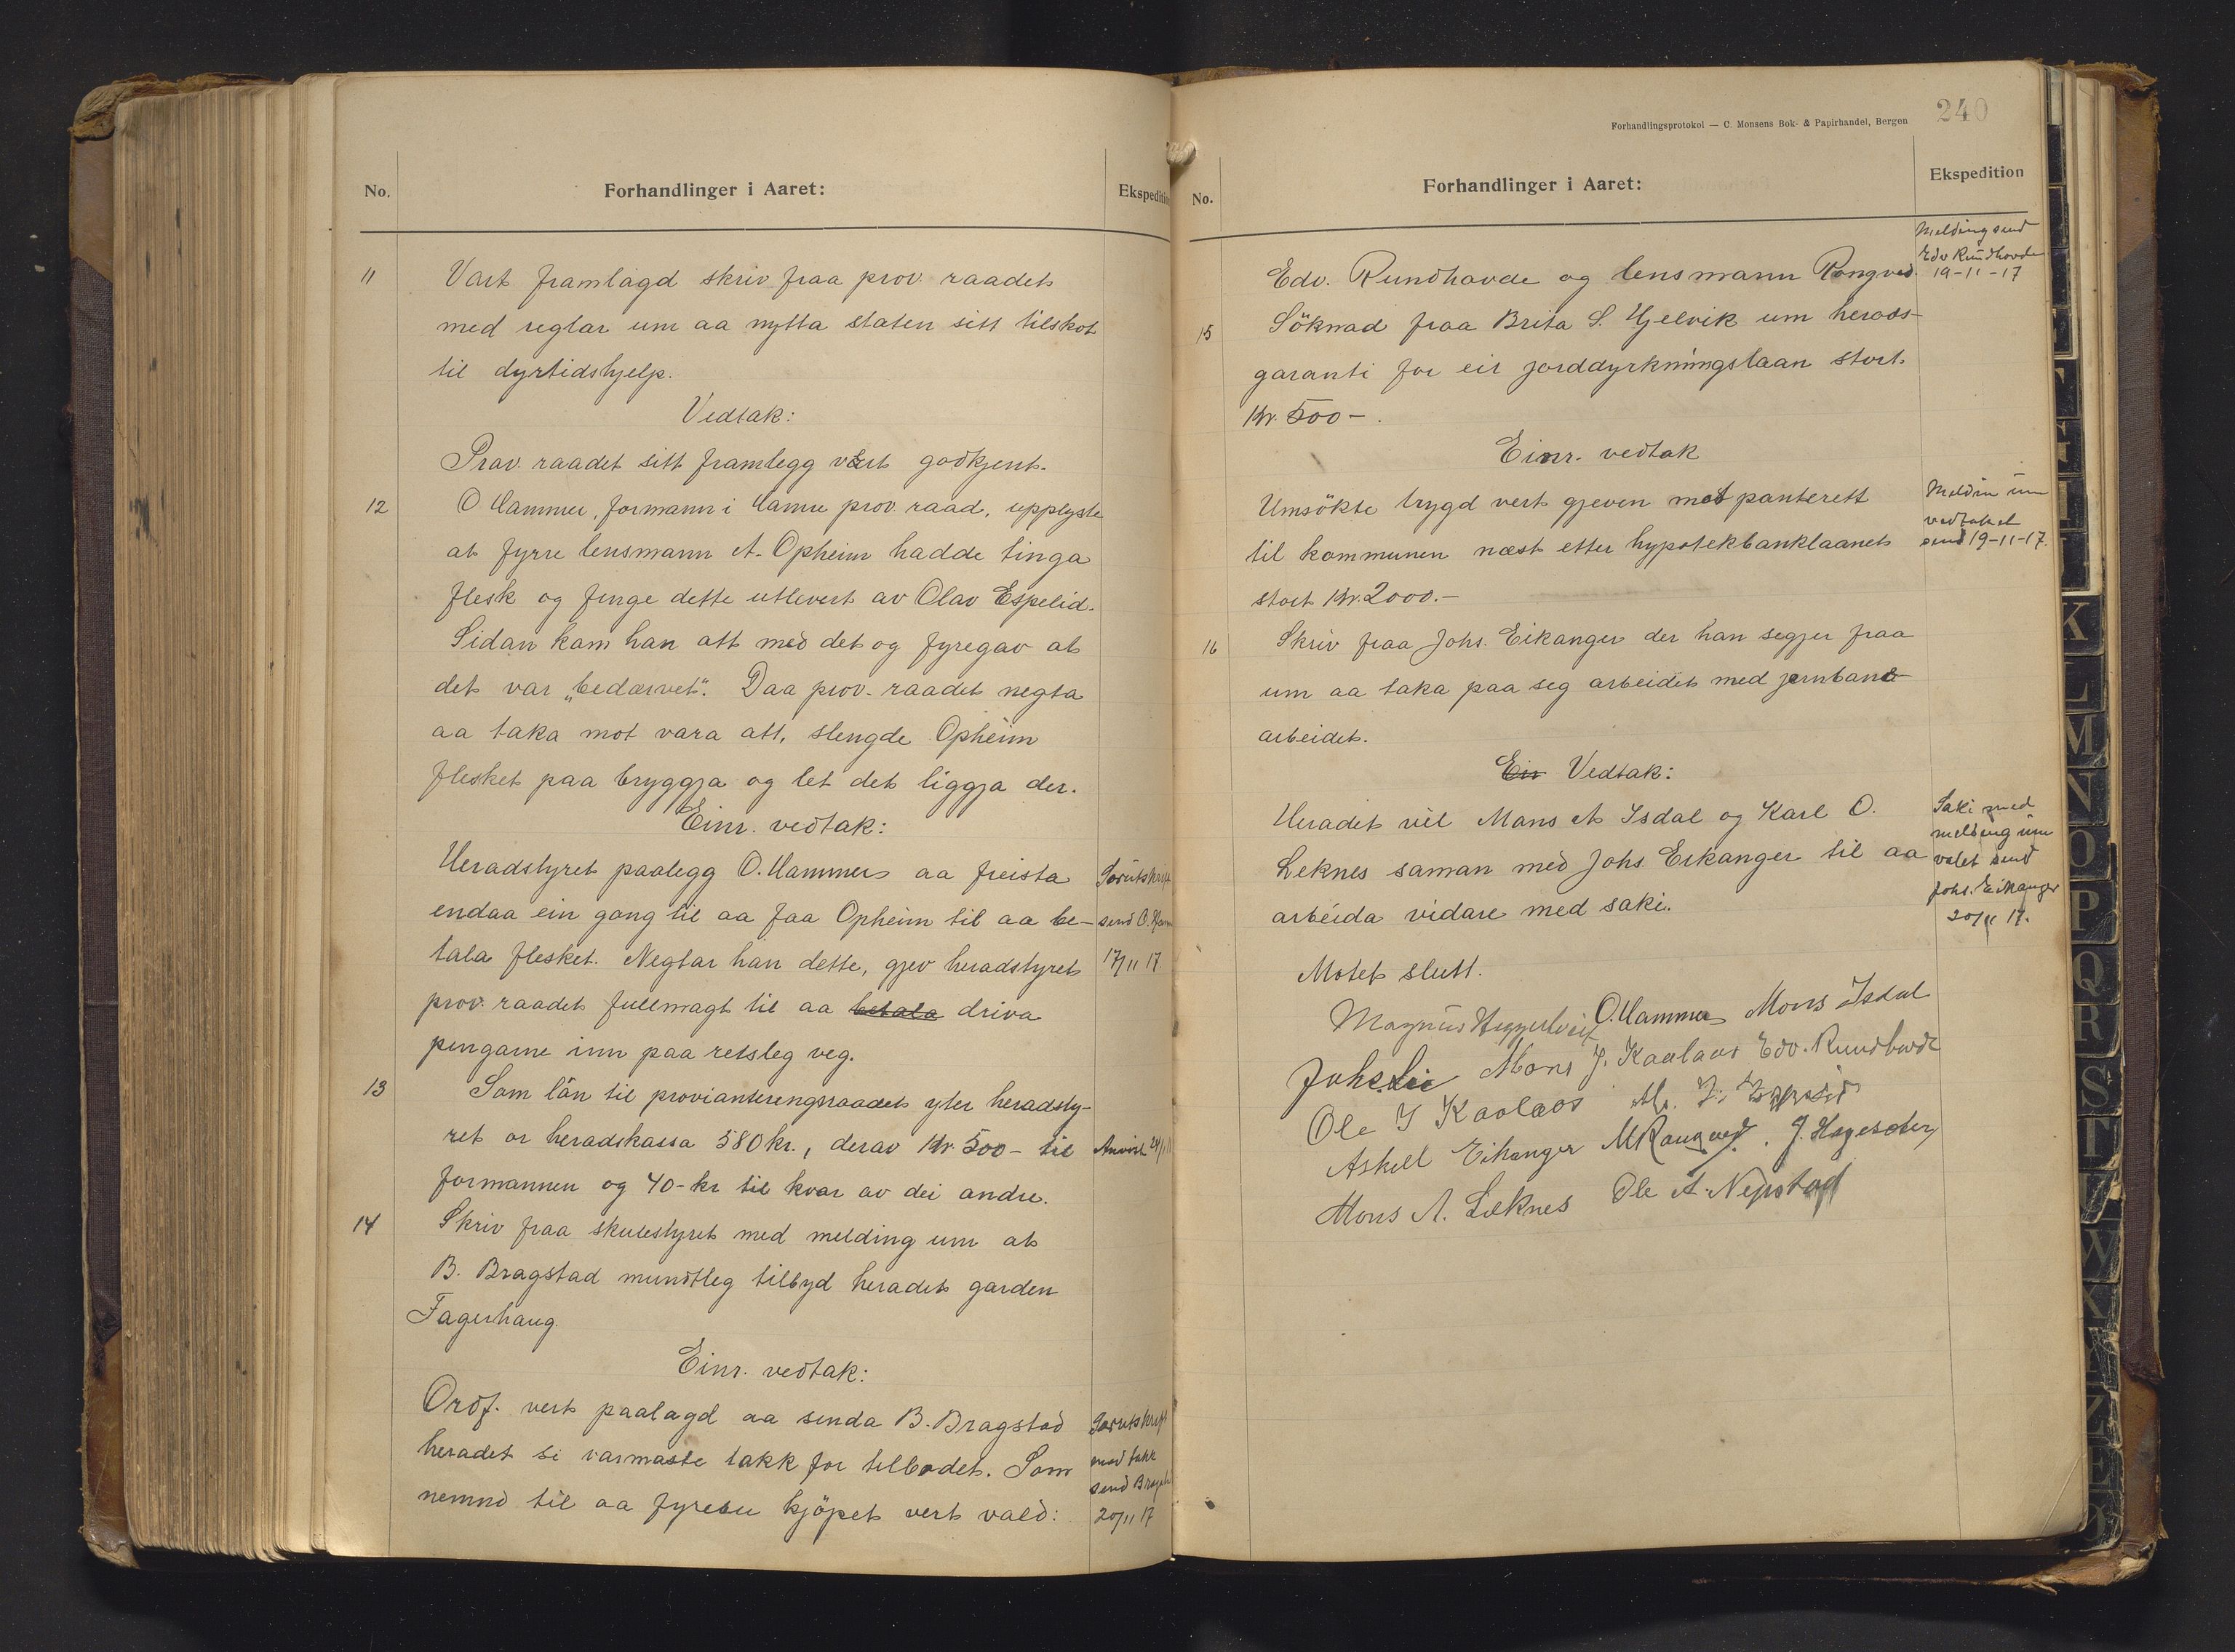 No.
Forhandlinger i Aaret:
Ekspedition
11
Vart framlagd skriv fraa prov. raadet
med reglar um aa nytta staten sitt tilskot
til dyrtidshjelp.
Vedtak:
Prov. raadet sitt framlegg vert godkjent.
12
O Hammer, formann i Hamre prov. raad, upplyste
at fyrre lensmann A. Opheim hadde tinga
flesk og finge dette utlevert av Olav Espelid.
Sidan kom han att med det og fyregav at
det var „bedærvet“. Daa prov. raadet negta
aa taka mot vara att, slengde Opheim
flesket paa bryggja og let det liggja der.
Einr. vedtak:
Heradstyret paalegg O. Hammer aa freista
endaa ein gong til aa faa Opheim til aa be-
tala flesket. Negtar han dette, gjev heradstyret
prov. raadet fullmagt til aa betala driva
pengarne inn paa retsleg veg.
Særutskrift
send O. Ham
17/11 17
13
Som lön til provianteringsraadet yter heradsty-
ret or heradskassa 580 kr., derav Kr. 500- til
formannen og 40- kr til kvar av dei andre.
Anvist 24/11
14
Skriv fraa skulestyret med melding um at
B. Bragstad mundtleg tilbyd heradet garden
Fagerhaug.
Einr. vedtak:
Ordf. vert paalagd aa senda B. Bragstad
heradet si varmaste takk for tilbodet. Som
nemnd til aa fyrebu kjöpet vert vald:
Særutskrift
med takk
send Bragst
20/11 17
Forhandlingsprotokol — C. Monsens Bok- & Papirhandel, Bergen
240
No.
Forhandlinger i Aaret:
Ekspedition
Edv. Rundhovde og lensmann Rongved.
Melding send
Edv Rundhovde
19-11-17
15
Söknad fraa Brita S. Hjelvik um herads-
garanti for eit jorddyrkningslaan stort
Kr. 500-.
Einr. vedtak
Umsökte trygd vert gjeven mot panterett
til kommunen næst etter hypotekbanklaanet
stort Kr. 2000.-
Meldin um
vedtaket
send 19-11-17.
16
Skriv fraa Johs. Eikanger der han segjer fraa
um aa taka paa seg arbeidet med jernbane
arbeidet.
Ein Vedtak:
Heradet vil Mons A Isdal og Karl O.
Leknes saman med Johs Eikanger til aa
arbeida vidare med saki.
Saki med
melding um
valet send
Johs. Eikanger
20/11 17.
Motet slutt.
Magnus Heggertveit O. Hammer Mons Isdal
Johs Lie Mons J. Kaalaas Edv. Rundhovde
Ole J Kaalaas
Askell Eikanger M Rongved. J. Hagesæter
Mons A. Leknes Ole A. Nepstad